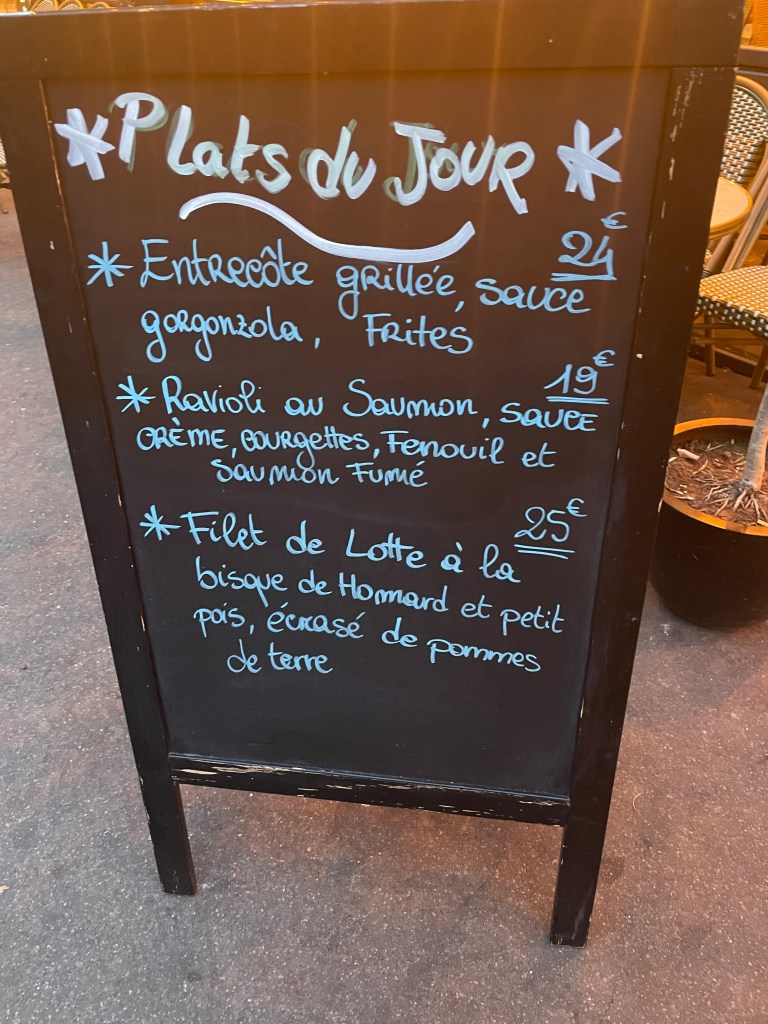 * Plats du Jour *
24€
* Entrecôte grillée, sauce
gorgonzola, Frites
19€
* Ravioli au Saumon, sauce
crème, courgettes, Fenouil et
saumon Fumé
25€
* Filet de Lotte à la
bisque de Homard et petit
pois, écrasé de pommes
de terre